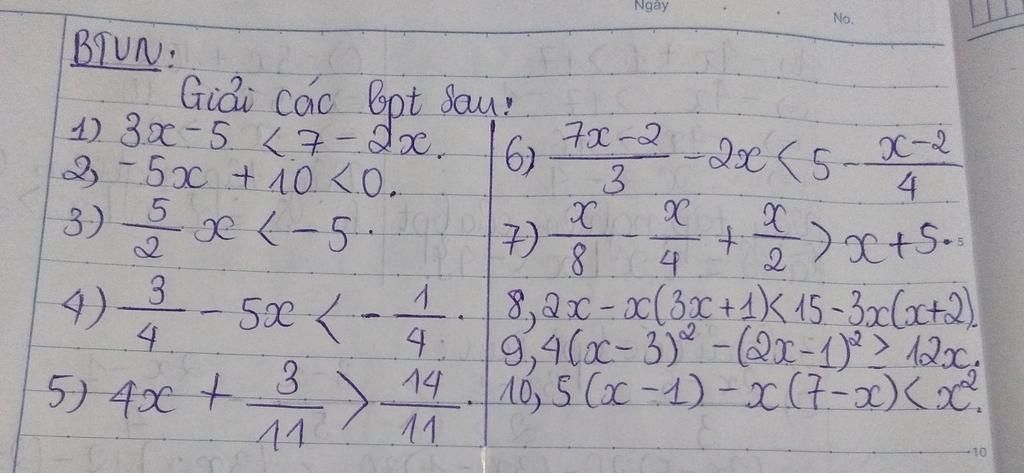 Ngày
No.
BTVN:
Giải các bpt sau:
1) 3x - 5 < 7 - 2x.
2, -5x + 10 < 0.
3) 5/2 x < -5.
4) 3/4 - 5x < -1/4.
5) 4x + 3/11 > 14/11.
6) (7x-2)/3 - 2x < 5 - (x-2)/4
7) x/8 - x/4 + x/2 > x + 5.
8, 2x - x(3x+1) < 15 - 3x(x+2).
9, 4(x-3)² - (2x-1)² ≥ 12x.
10, 5(x-1) - x(7-x) < x².
5
10